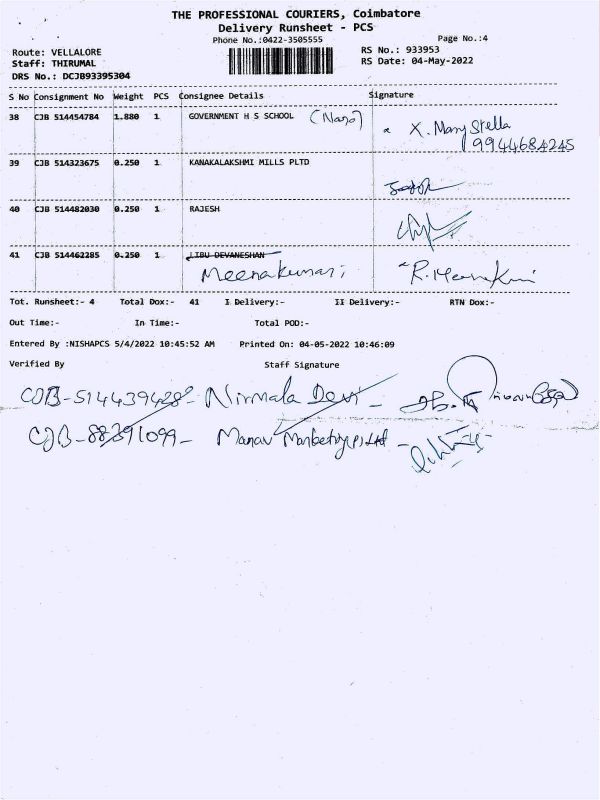 THE PROFESSIONAL COURIERS, Coimbatore
Delivery Runsheet - PCS
Phone No.:0422-3505555
Page No.:4
Route: VELLALORE
RS No.: 933953
Staff: THIRUMAL
RS Date: 04-May-2022
DRS No.: DCJB93395304
S No Consignment No Weight PCS Consignee Details Signature
38 CJB 514454784 1.880 1 GOVERNMENT H S SCHOOL X. Mary Stella
9944684245
39 CJB 514323675 0.250 1 KANAKALAKSHMI MILLS PLTD
40 CJB 514482030 0.250 1 RAJESH
41 CJB 514462285 0.250 1 LIBU DEVANESHAN
Meenakumari R. Meenakumari
Tot. Runsheet:- 4 Total Dox:- 41 I Delivery:- II Delivery:- RTN Dox:-
Out Time:- In Time:- Total POD:-
Entered By :NISHAPCS 5/4/2022 10:45:52 AM Printed On: 04-05-2022 10:46:09
Verified By Staff Signature
CJB-514439428 - Nirmala Devi -
CJB-88391099 - Manav Marketing P Ltd -